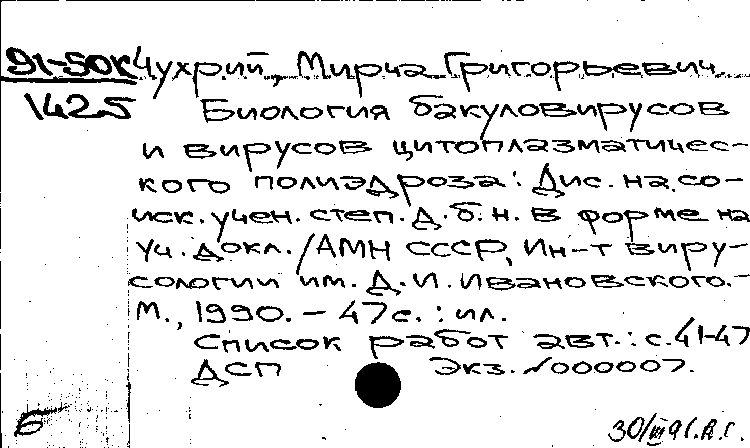 91-50к Чухрий, Мирча Григорьевич.
1425 Биология бакуловирусов
и вирусов цитоплазматичес-
кого полиэдроза: Дис. на со-
иск. учен. степ. д.б.н. в форме на
уч. докл. /АМН СССР, Ин-т виру-
сологии им. Д.И. Ивановского.-
М., 1990. - 47с. : ил.
Список работ авт.: с.41-47
ДСП Экз. √000007.
Б
30/III 91г.